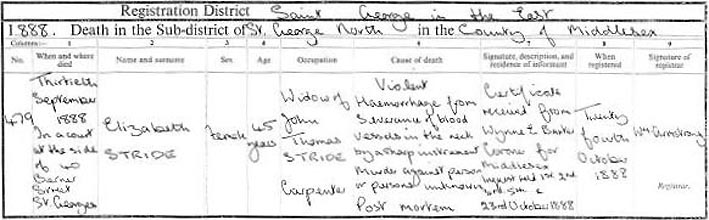 Registration District Saint George in the East
1888. Death in the Sub-district of St. George North in the County of Middlesex
Columns:— 1 2 3 4 5 6 7 8 9
No. When and where died Name and surname Sex Age Occupation Cause of death Signature, description, and residence of informant When registered Signature of registrar
479
Thirtieth
September
1888
In a court
at the side
of 40
Berner
Street
St. Georges
Elizabeth
STRIDE
female
45
years
Widow of
John
Thomas
STRIDE
Carpenter
Violent
Haemorrhage from
Severance of blood
vessels in the neck
by a sharp instrument
Murder against person
or persons unknown
Post mortem
Certificate
received from
Wynne E Baxter
Coroner for
Middlesex
Inquest held 1st 2nd
3rd 5th &
23rd October 1888
Twenty
fourth
October
1888
Wm Armstrong
Registrar.